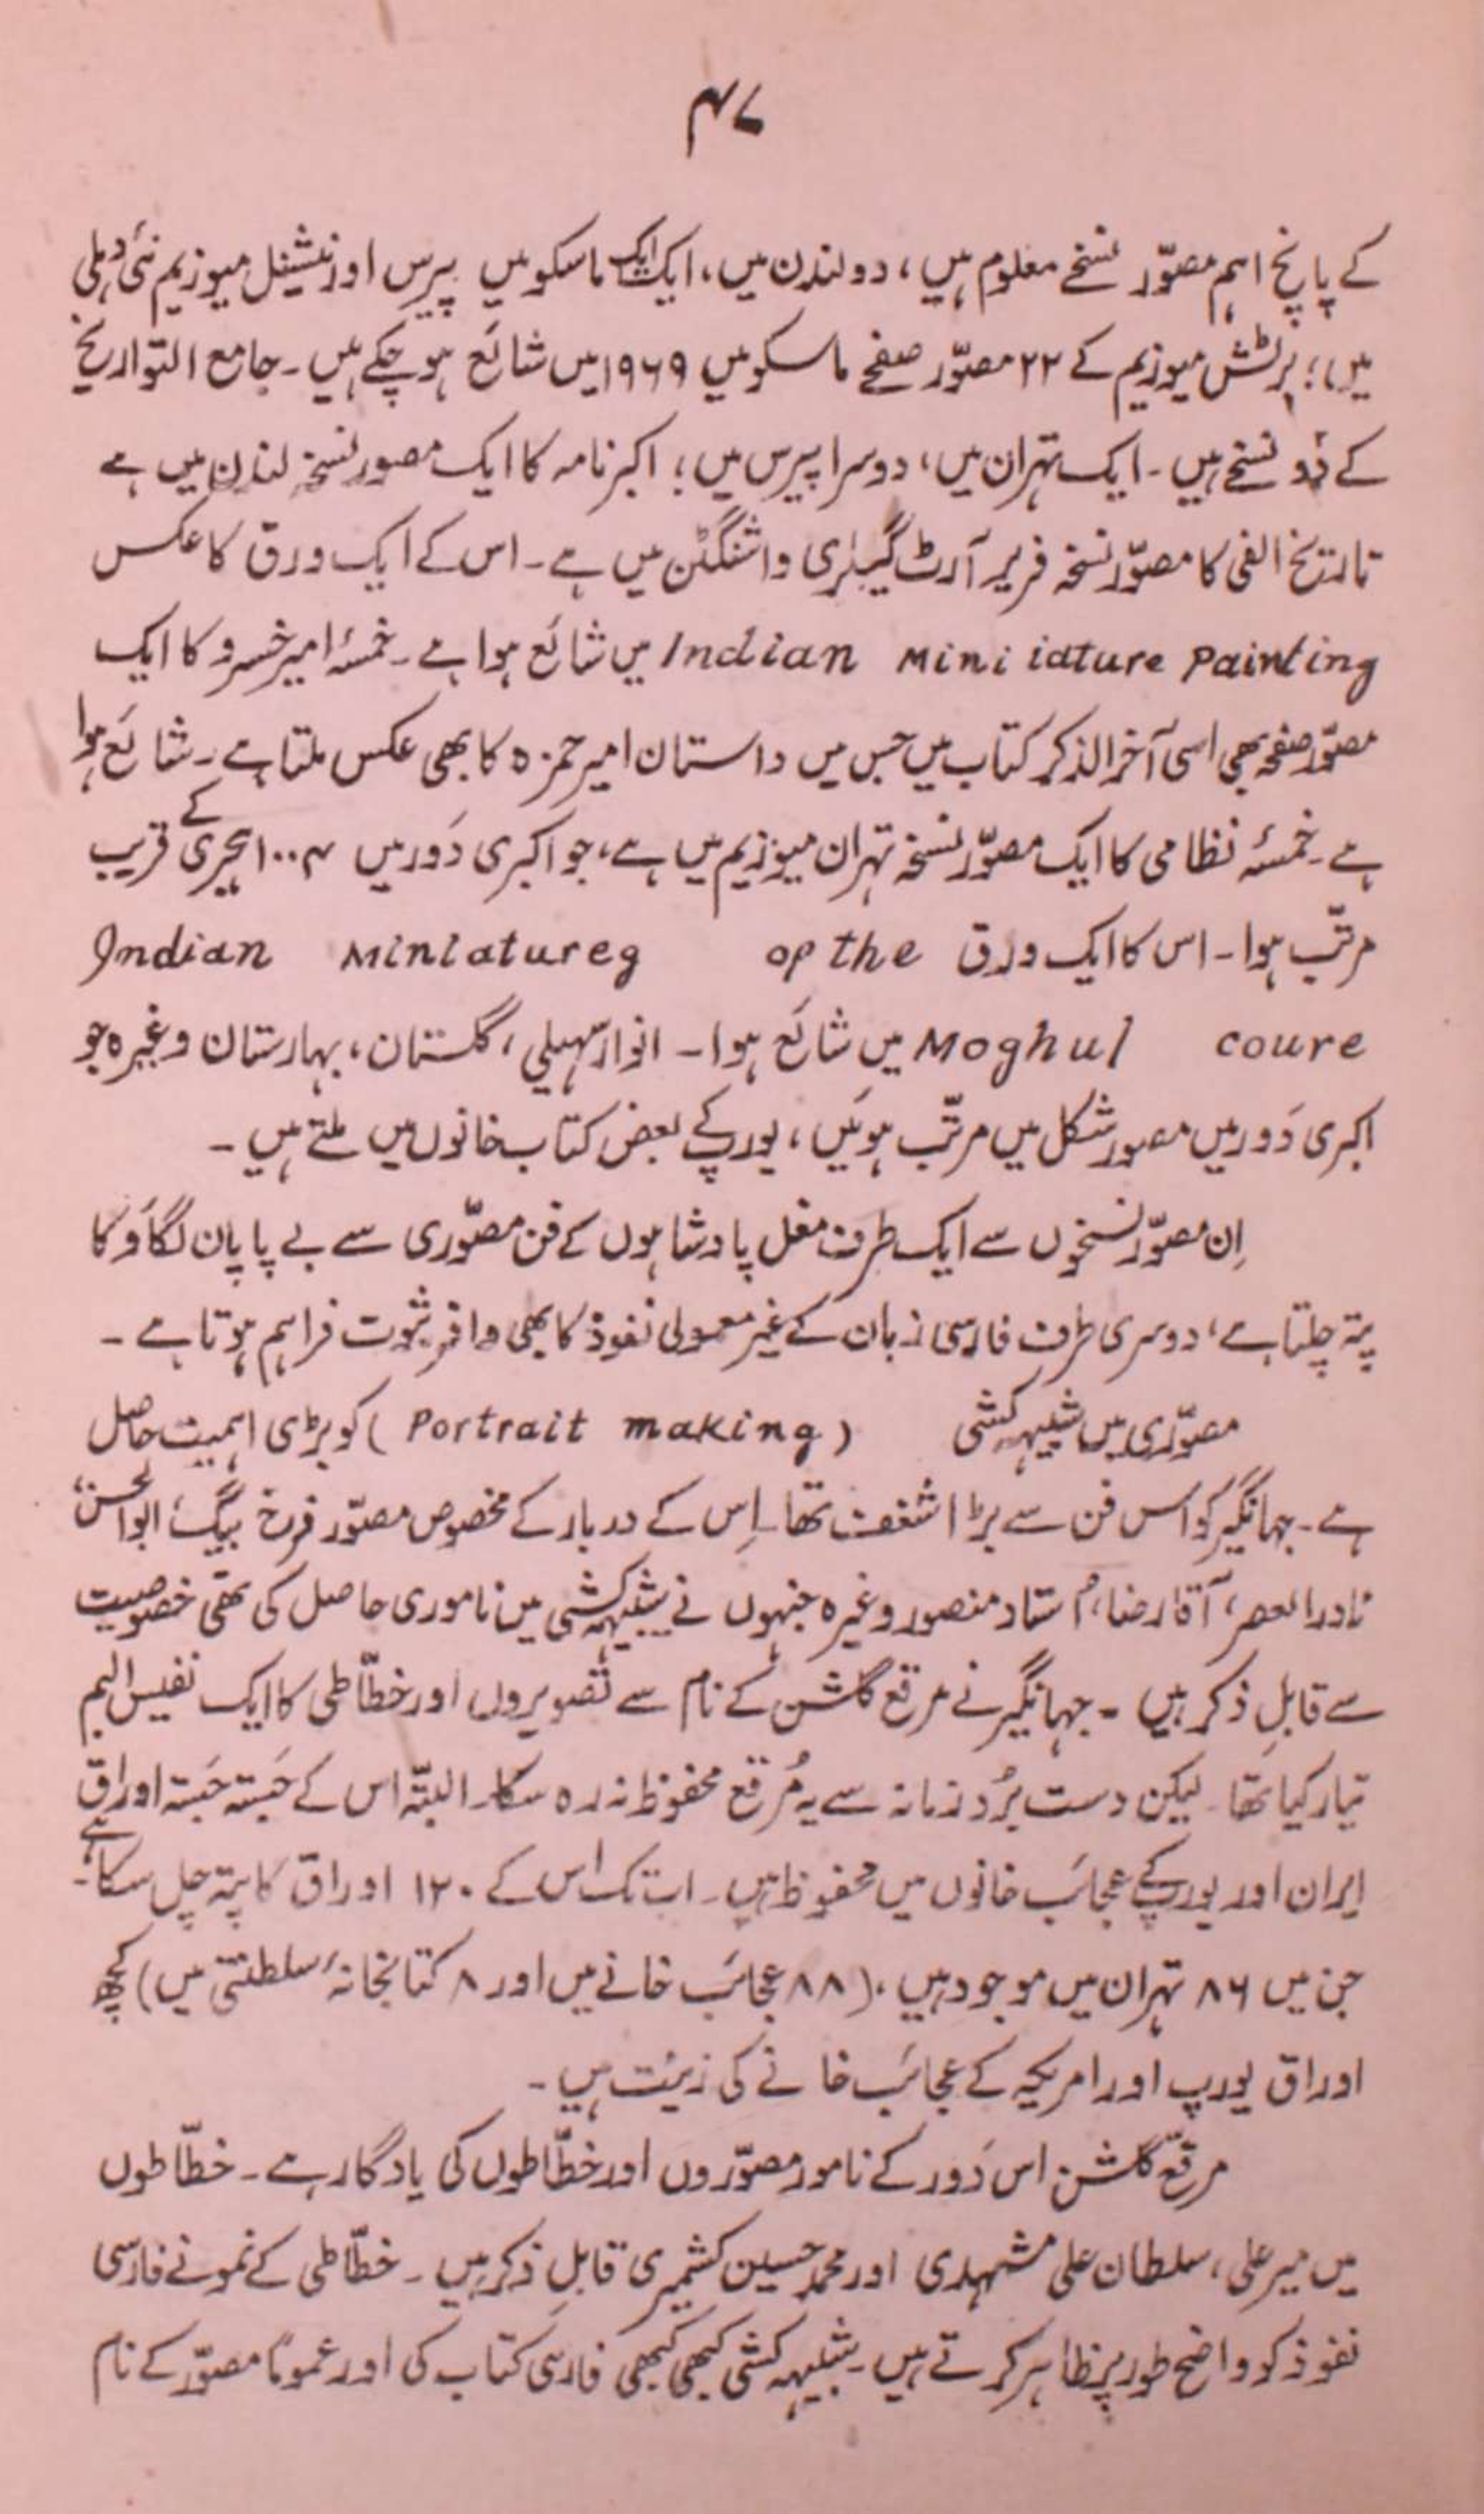 ۴۷
کے پانچ اہم مصوّر نسخے معلوم ہیں، دو لندن میں، ایک ایک ماسکو میں پیرس اور نیشنل میوزیم نئی دہلی
میں؛ برٹش میوزیم کے ۲۲ مصوّر صفحے ماسکو میں ۱۹۶۹ میں شائع ہو چکے ہیں۔ جامع التواریخ
کے دو نسخے ہیں۔ ایک تہران میں، دوسرا پیرس میں؛ اکبر نامہ کا ایک مصور نسخہ لندن میں ہے
تاریخ الفی کا مصوّر نسخہ فریر آرٹ گیلری واشنگٹن میں ہے۔ اس کے ایک ورق کا عکس
Indian Mini iature Painting میں شائع ہوا ہے۔ خمسۂ امیر خسرو کا ایک
مصوّر صفحہ بھی اسی آخر الذکر کتاب میں جس میں داستان امیر حمزہ کا بھی عکس ملتا ہے۔ شائع ہوا
ہے۔ خمسۂ نظامی کا ایک مصوّر نسخہ تہران میوزیم میں ہے، جو اکبری دَور میں ۱۰۰۴ ہجری کے قریب
مرتّب ہوا۔ اس کا ایک ورق Indian Miniatureg op the
Moghul coure میں شائع ہوا۔ انوار سہیلی، گلستان، بہارستان وغیرہ جو
اکبری دَور میں مصور شکل میں مرتّب ہوئیں، یورپ کے بعض کتاب خانوں میں ملتے ہیں۔
اِن مصوّر نسخوں سے ایک طرف مغل پادشاہوں کے فن مصوّری سے بے پایان لگاؤ کا
پتہ چلتا ہے، دوسری طرف فارسی زبان کے غیر معمولی نفوذ کا بھی وافر ثبوت فراہم ہوتا ہے۔
مصوّری میں شبیہہ کشی (Portrait making) کو بڑی اہمیت حاصل
ہے۔ جہانگیر کو اس فن سے بڑا شغف تھا۔ اِس کے دربار کے مخصوص مصوّر فرخ بیگ، ابوالحسن،
نادرالعصر، آقا رضا، اُستاد منصور وغیرہ جنہوں نے شبیہہ کشی میں ناموری حاصل کی تھی خصوصیت
سے قابلِ ذکر ہیں۔ جہانگیر نے مرقع گلشن کے نام سے تصویروں اور خطّاطی کا ایک نفیس البم
تیار کیا تھا۔ لیکن دست بُرد زمانہ سے یہ مُرقع محفوظ نہ رہ سکا۔ البتّہ اس کے جَستہ جَستہ اوراق
ایران اور یورپ کے عجائب خانوں میں محفوظ ہیں۔ اب تک اس کے ۱۲۰ اوراق کا پتہ چل سکا ہے۔
جن میں ۸۶ تہران میں موجود ہیں، (۸۸ عجائب خانے میں اور ۸ کتابخانۂ سلطنتی میں) کچھ
اوراق یورپ اور امریکہ کے عجائب خانے کی زینت ہیں۔
مرقّع گلشن اس دَور کے نامور مصوّروں اور خطّاطوں کی یادگار ہے۔ خطّاطوں
میں میر علی، سلطان علی مشہدی اور محمد حسین کشمیری قابلِ ذکر ہیں۔ خطّاطی کے نمونے فارسی
نفوذ کو واضح طور پر ظاہر کرتے ہیں۔ شبیہہ کشی کبھی کبھی فارسی کتاب کی اور عموماً مصوّر کے نام